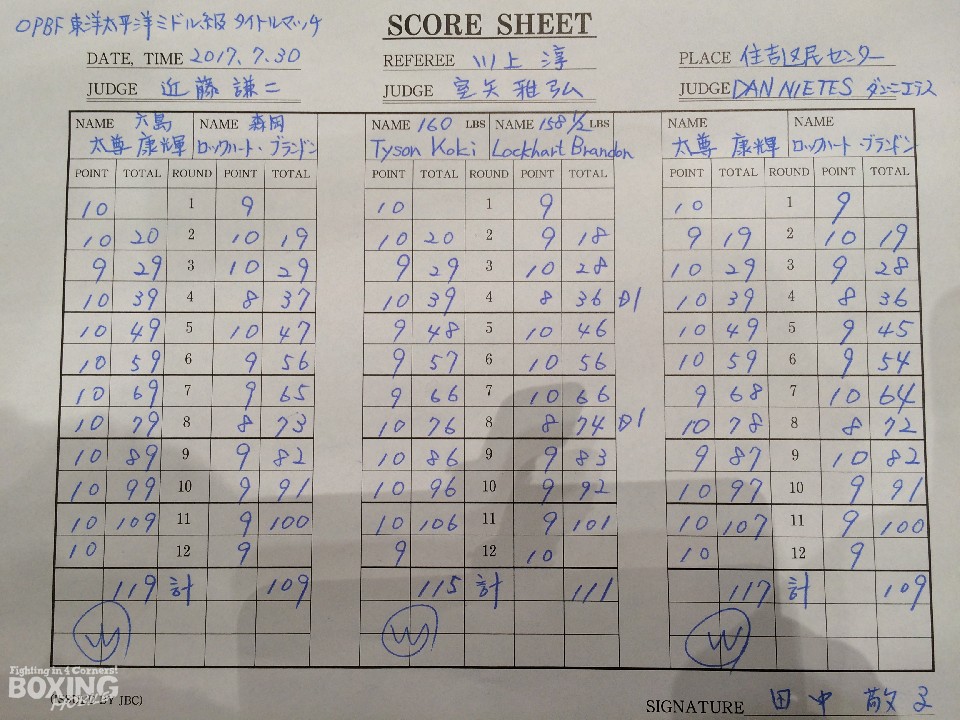 OPBF 東洋太平洋ミドル級 タイトルマッチ
SCORE SHEET
DATE, TIME 2017. 7. 30 REFEREE 川上 淳 PLACE 住吉区民センター
JUDGE 近藤 謙二 JUDGE 室矢 雅弘 JUDGE DAN NIETES ダン・ニエテス
NAME 六島 NAME 森岡 NAME 160 LBS NAME 158 1/2 LBS NAME NAME
太尊 康輝 ロックハート・ブランドン Tyson Koki Lockhart Brandon 太尊 康輝 ロックハート・ブランドン
POINT TOTAL ROUND POINT TOTAL POINT TOTAL ROUND POINT TOTAL POINT TOTAL ROUND POINT TOTAL
10 1 9 10 1 9 10 1 9
10 20 2 10 19 10 20 2 9 18 9 19 2 10 19
9 29 3 10 29 9 29 3 10 28 10 29 3 9 28
10 39 4 8 37 10 39 4 8 36 D1 10 39 4 8 36
10 49 5 10 47 9 48 5 10 46 10 49 5 9 45
10 59 6 9 56 9 57 6 10 56 10 59 6 9 54
10 69 7 9 65 9 66 7 10 66 9 68 7 10 64
10 79 8 8 73 10 76 8 8 74 D1 10 78 8 8 72
10 89 9 9 82 10 86 9 9 83 9 87 9 10 82
10 99 10 9 91 10 96 10 9 92 10 97 10 9 91
10 109 11 9 100 10 106 11 9 101 10 107 11 9 100
10 12 9 9 12 10 10 12 9
119 計 109 115 計 111 117 計 109
W W W
Fighting in 4 Corners!
BOXING
(ISSUED BY JBC)
SIGNATURE 田中 敬子